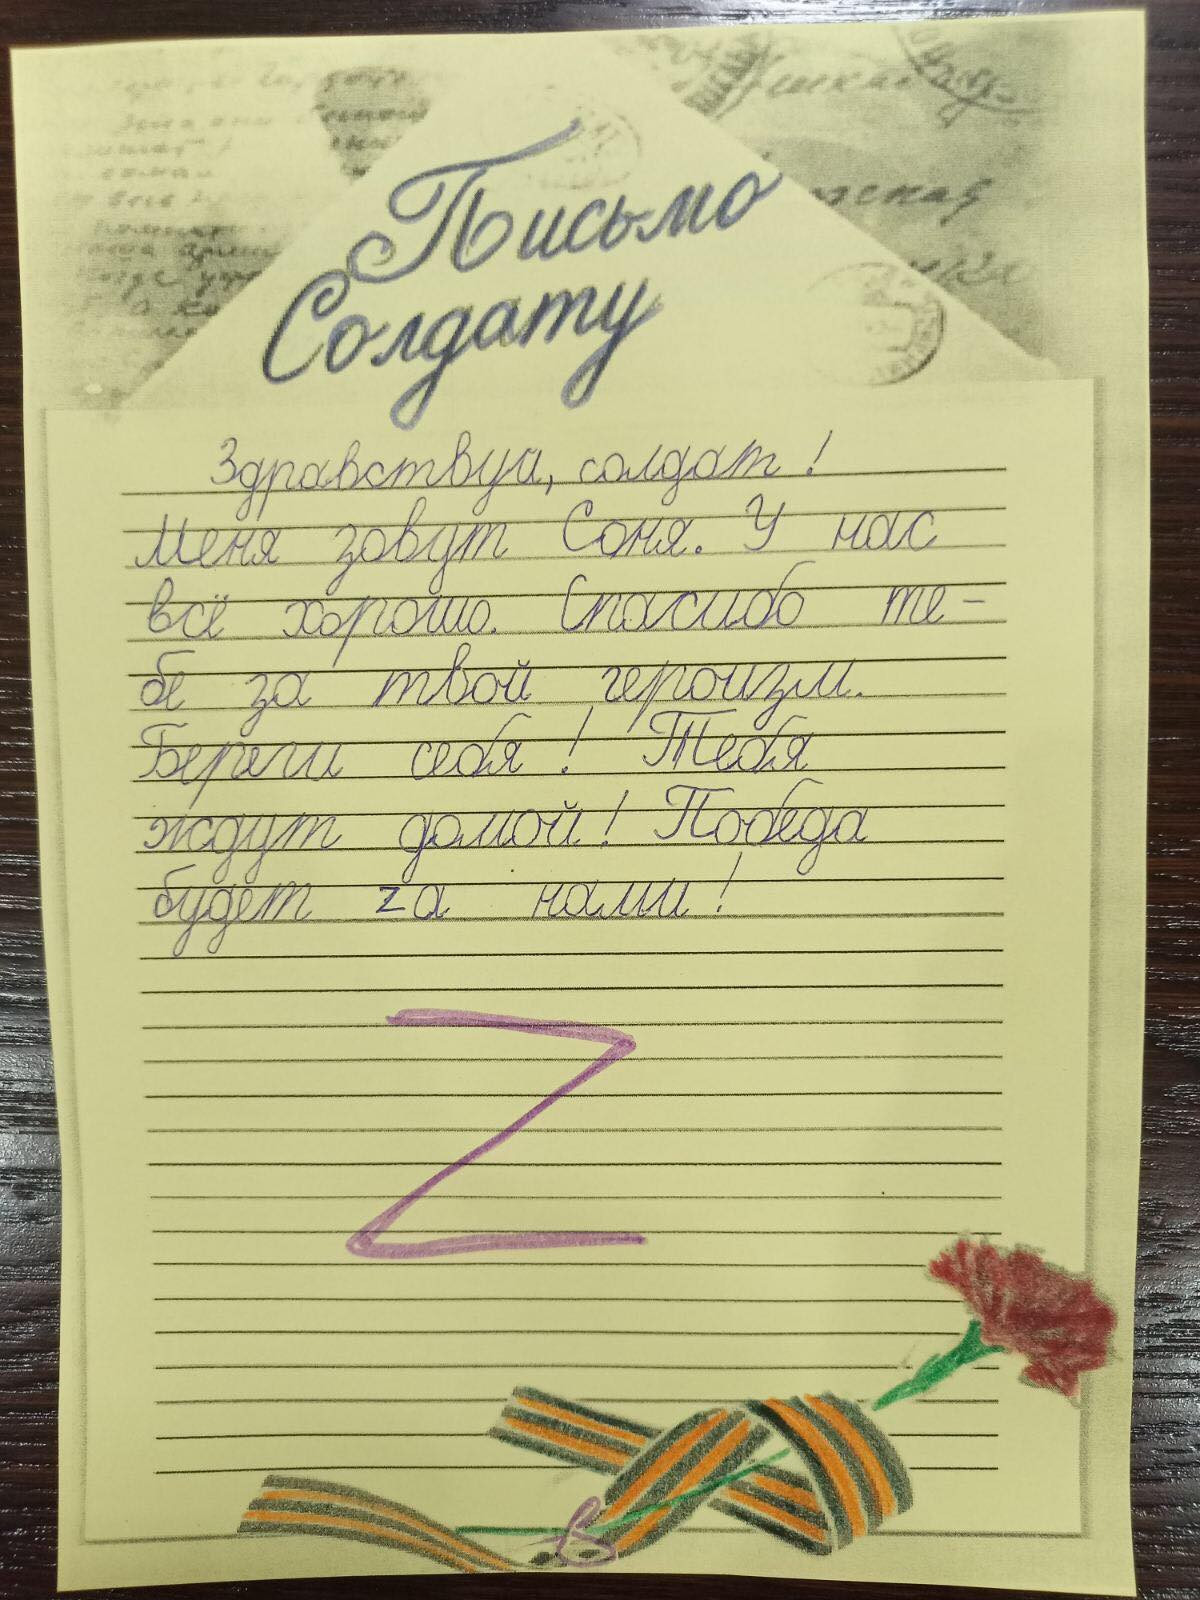 Письмо
Солдату
Здравствуй, солдат!
Меня зовут Соня. У нас
всё хорошо. Спасибо те-
бе за твой героизм.
Береги себя! Тебя
ждут домой! Победа
будет zа нами!
Z